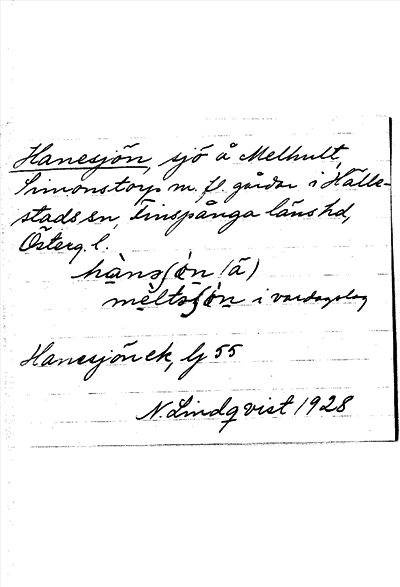 Hanesjön, sjö å Melhult,
Simonstorp m. fl. gårdar i Hälle-
stads sn, Finspånga läns hd,
Österg. l.
hànəʃön (ä)
mèltəʃön i vardagslag
Hanesjön ek, Lj 55
N. Lindqvist 1928